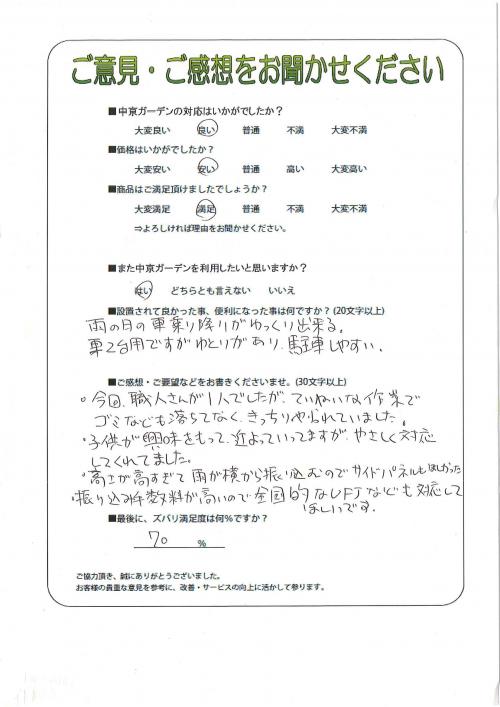 ご意見・ご感想をお聞かせください
■中京ガーデンの対応はいかがでしたか？
大変良い 良い 普通 不満 大変不満
■価格はいかがでしたか？
大変安い 安い 普通 高い 大変高い
■商品はご満足頂けましたでしょうか？
大変満足 満足 普通 不満 大変不満
⇒よろしければ理由をお聞かせください。
■また中京ガーデンを利用したいと思いますか？
はい どちらとも言えない いいえ
■設置されて良かった事、便利になった事は何ですか？(20文字以上)
雨の日の車乗り降りがゆっくり出来る。
車2台用ですがゆとりがあり、駐車しやすい。
■ご感想・ご要望などをお書きくださいませ。(30文字以上)
・今回、職人さんが1人でしたが、ていねいな作業で
ゴミなども落ちてなく、きっちりやられていました。
・子供が興味をもって、近よっていってますが、やさしく対応
してくれてました。
・高さが高すぎて雨が横から振り込むのでサイドパネルもほしかった
・振り込み手数料が高いので全国的なUFJなども対応して
ほしいです。
■最後に、ズバリ満足度は何％ですか？
70 %
ご協力頂き、誠にありがとうございました。
お客様の貴重な意見を参考に、改善・サービスの向上に活かして参ります。